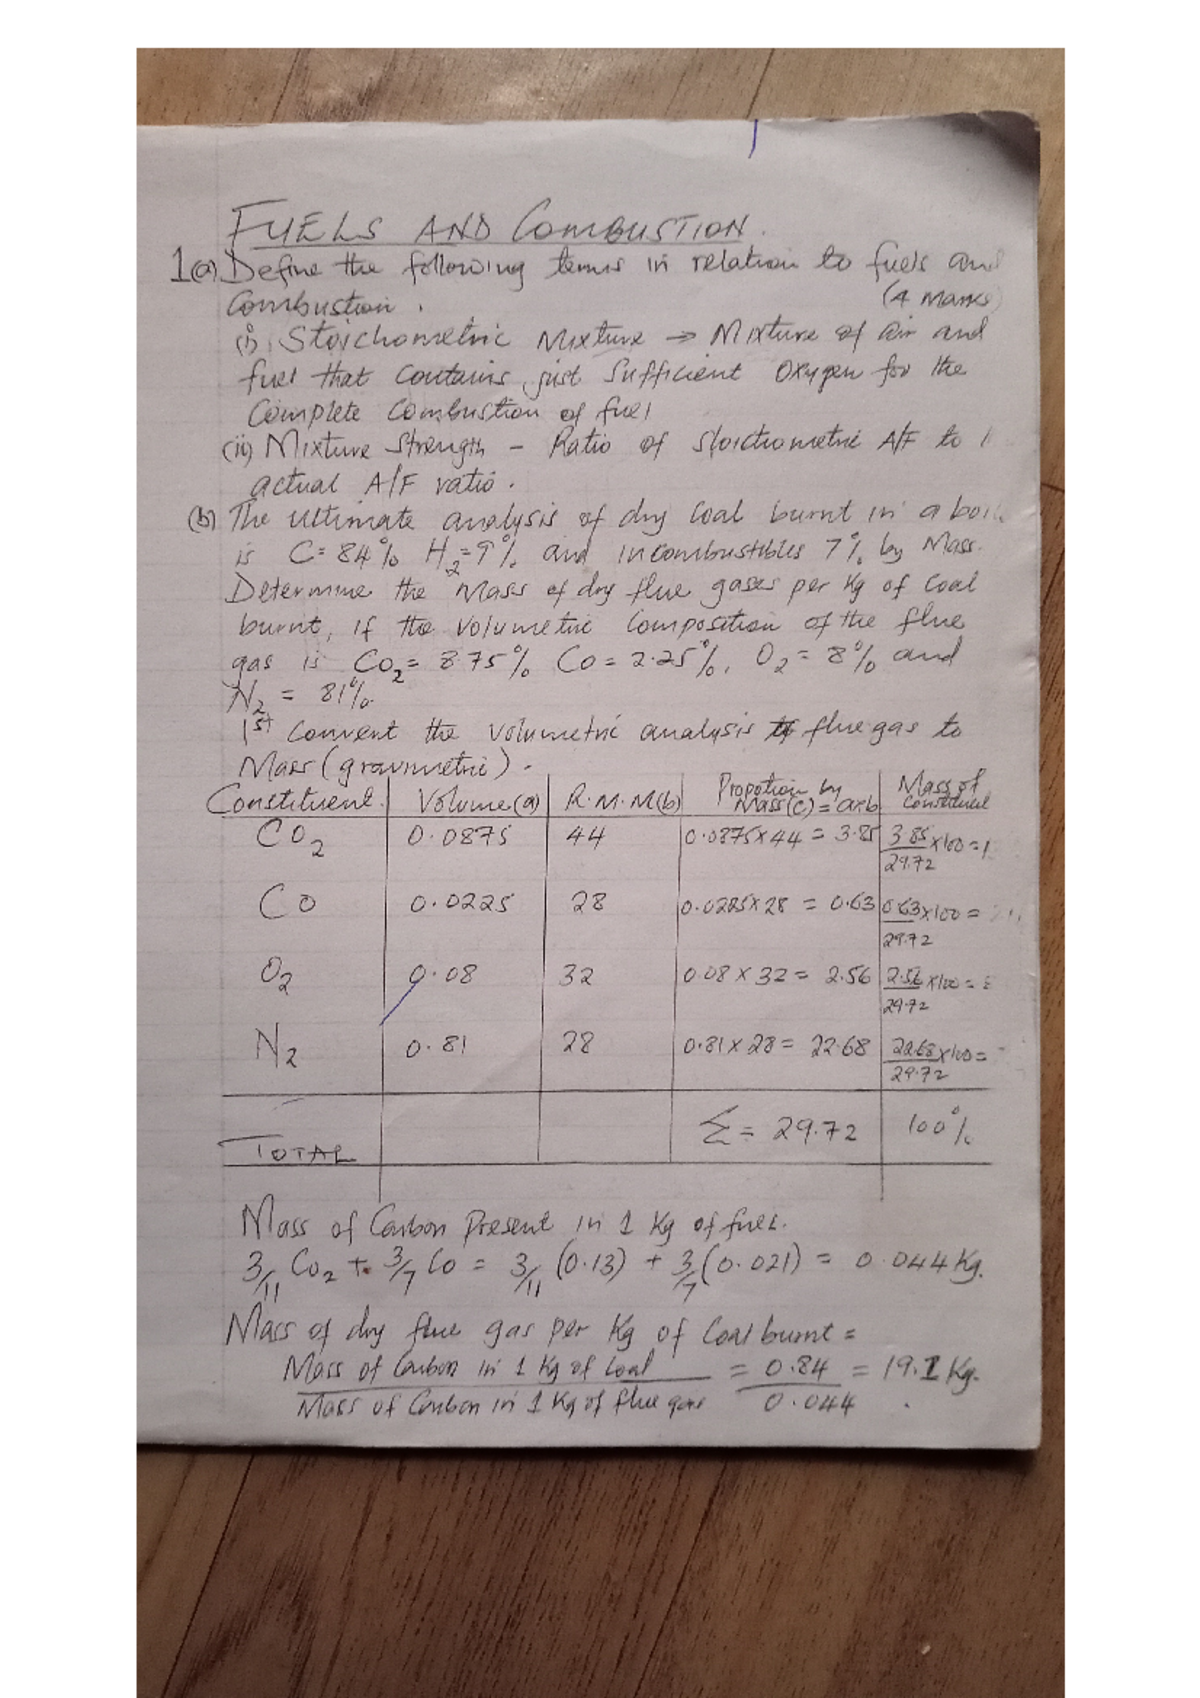 FUELS AND COMBUSTION.
1(a) Define the following terms in relation to fuels and
Combustion. (4 marks)
(i) Stoichometric Mixture → Mixture of air and
fuel that contains just sufficient oxygen for the
Complete Combustion of fuel
(ii) Mixture Strength - Ratio of Stoichometric A/F to
actual A/F ratio.
(b) The ultimate analysis of dry coal burnt in a
is C=84% H2=9% and incombustibles 7% by Mass.
Determine the Mass of dry flue gases per Kg of Coal
burnt, if the Volumetric Composition of the flue
gas is CO2= 8.75% CO= 2.25%, O2= 8% and
N2 = 81%.
1st Convert the volumetric analysis of flue gas to
Mass (gravimetric).
Constituent. Volume(a) R.M.M(b) Propotion by Mass(c)=axb Mass of Constituent
CO2 0.0875 44 0.0875x44 = 3.85 3.85/29.72 x100 =
CO 0.0225 28 0.0225x28 = 0.63 0.63/29.72 x100 =
O2 0.08 32 0.08 x 32 = 2.56 2.56/29.72 x100 =
N2 0.81 28 0.81 x 28 = 22.68 22.68/29.72 x100 =
TOTAL Σ = 29.72 100%
Mass of Carbon Present in 1 Kg of fuel.
3/11 CO2 + 3/7 CO = 3/11 (0.13) + 3/7 (0.021) = 0.044 Kg.
Mass of dry flue gas per Kg of Coal burnt =
Mass of Carbon in 1 Kg of Coal = 0.84 = 19.1 Kg.
Mass of Carbon in 1 Kg of flue gas 0.044